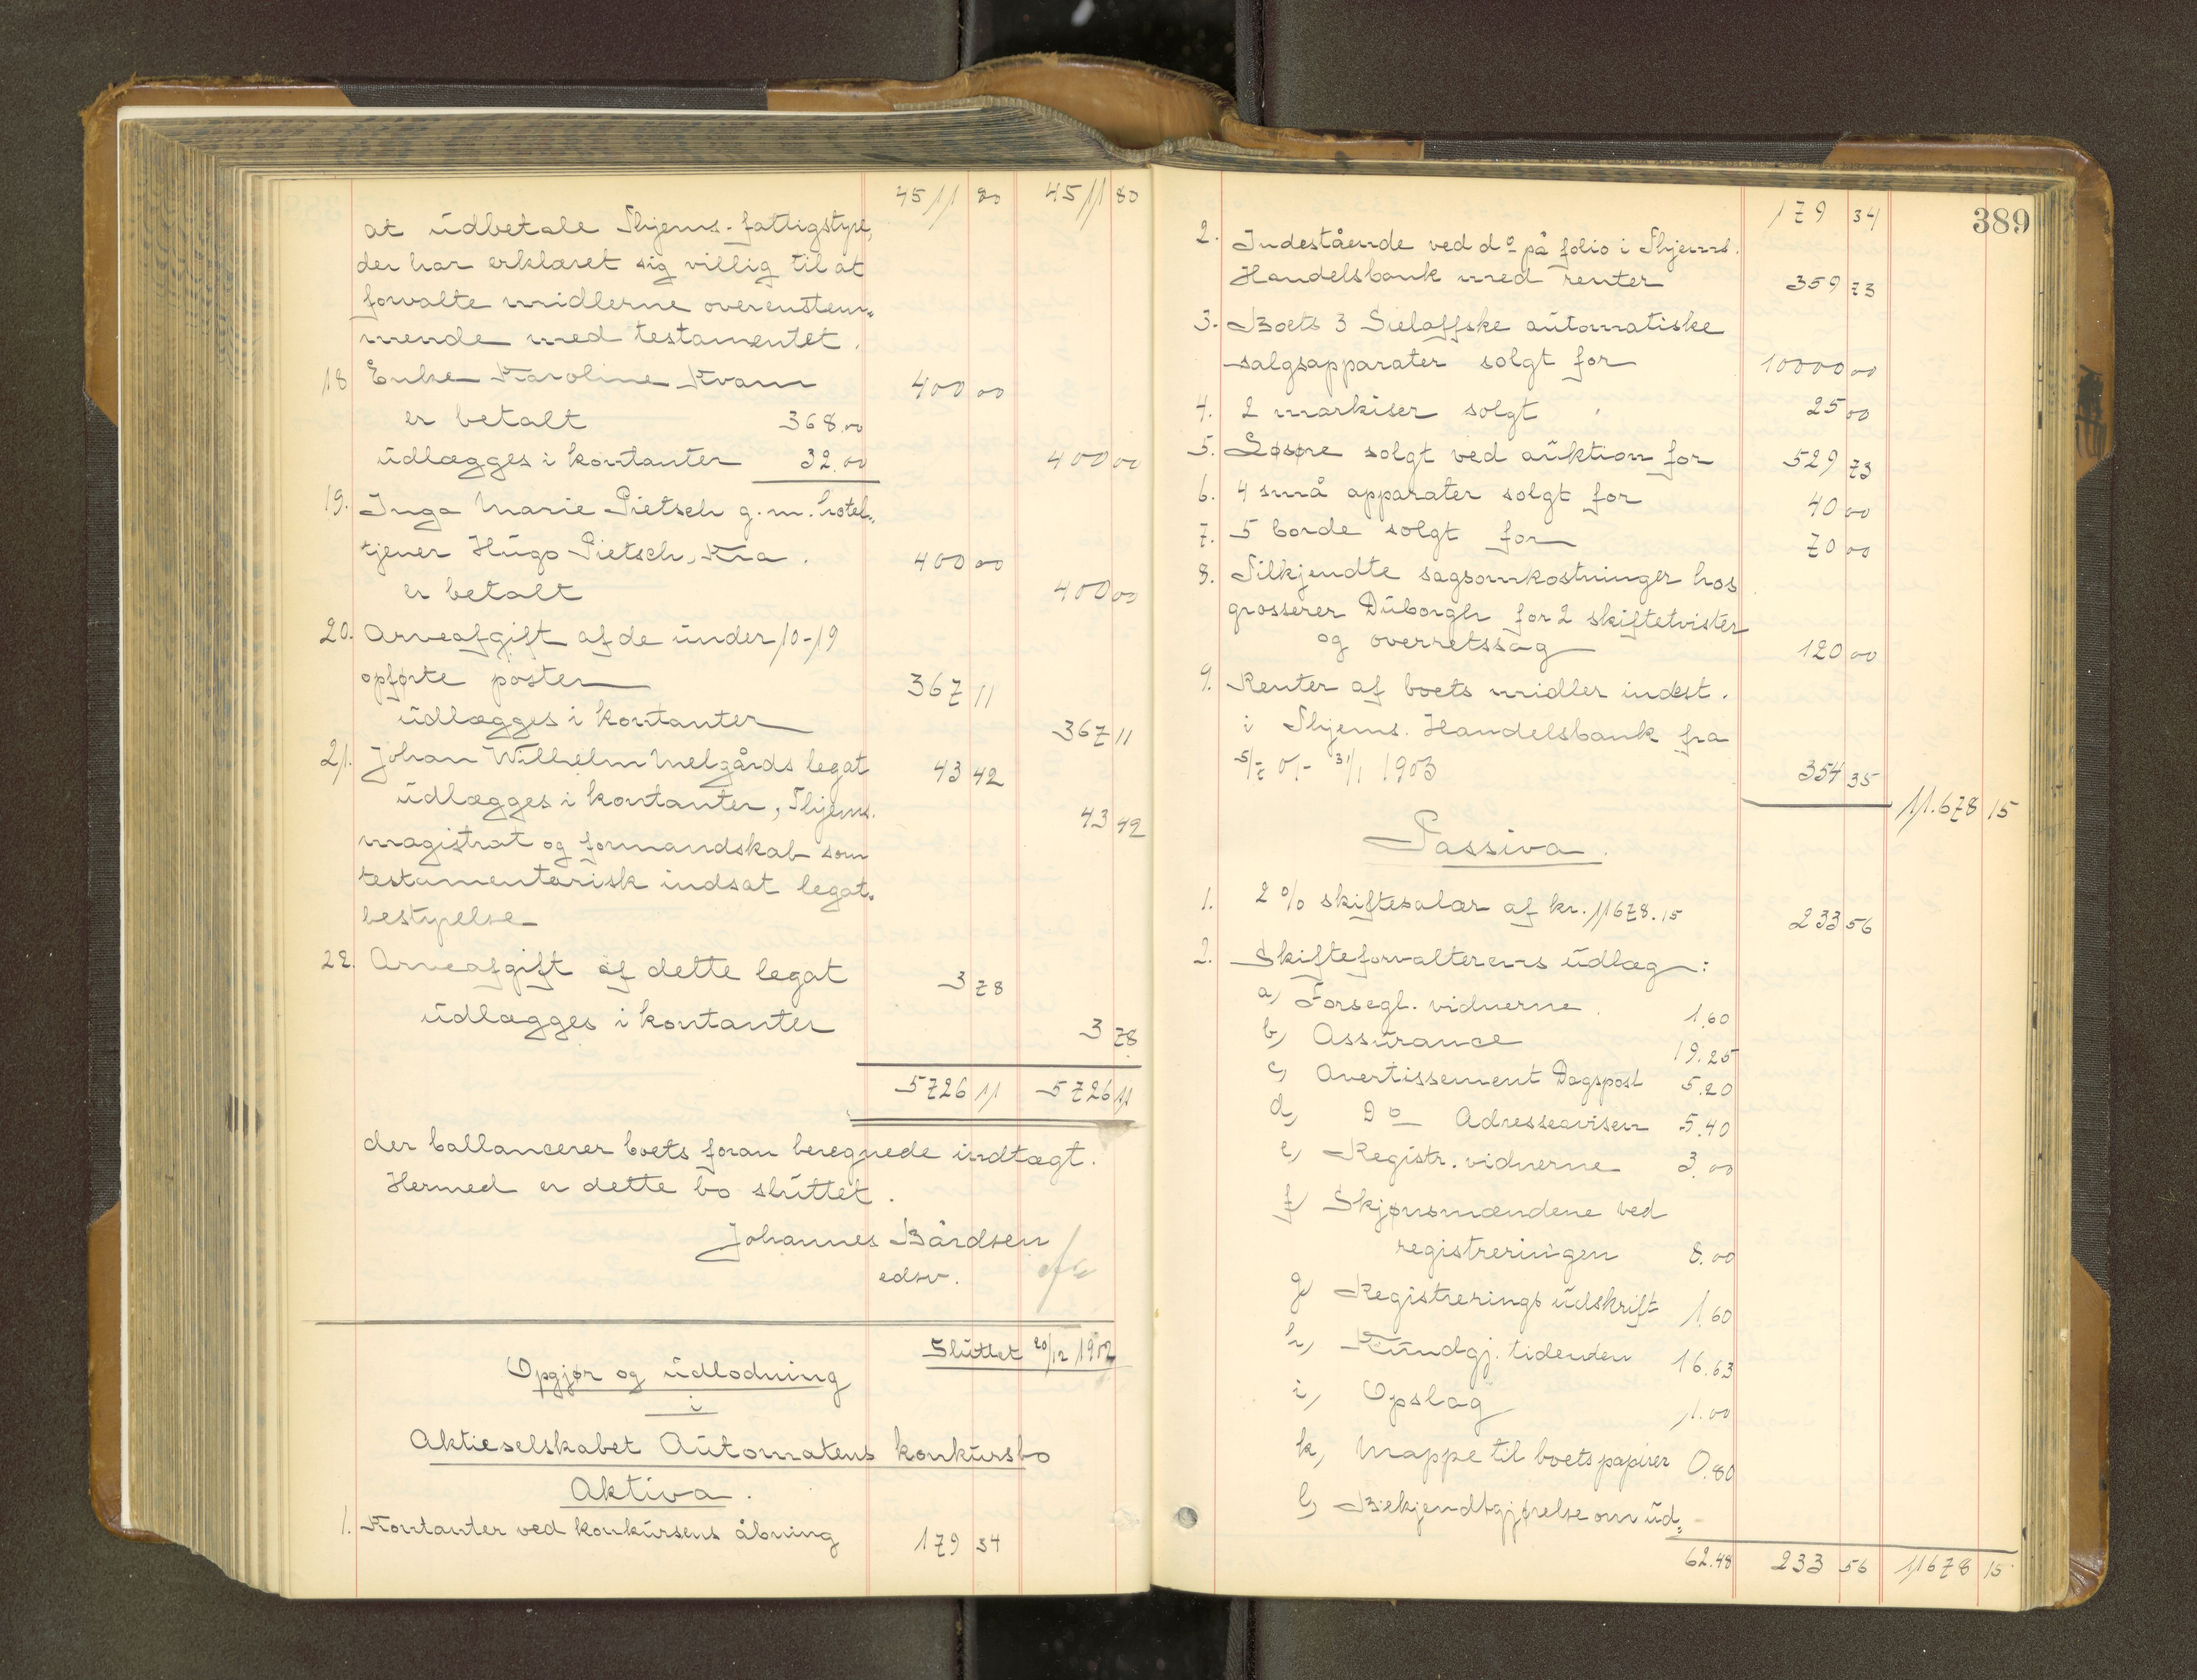 4511 80 4511 80
at udbetale Thjems. fattigstyre,
der har erklæret sig villig til at
forvalte midlerne overensstem-
mende med testamentet.
18 Enke Karoline Kvam 400 00
er betalt 368.00
udlægges i kontanter 32.00 400 00
19. Inga Marie Pietsch g. m. hotel-
tjener Hugo Pietsch, Kra. 400 00
er betalt 400 00
20. Arveafgift af de under 10-19
opførte poster 367 11
udlægges i kontanter 367 11
21. Johan Wilhelm Melgårds legat 43 42
udlægges i kontanter, Thjems. 43 42
magistrat og formandskab som
testamentarisk indsat legat-
bestyrelse
22. Arveafgift af dette legat 3 78
udlægges i kontanter 3 78
5726 11 5726 11
der ballancerer boets foran beregnede indtægt.
Hermed er dette bo sluttet.
Johannes Bårdsen
edsv.
Sluttet 20/12 1902
Opgjør og udlodning
i
Aktieselskabet Automatens konkursbo
Aktiva.
1. Kontanter ved konkursens åbning 179 34
389
179 34
2. Indestående ved do på folio i Thjems.
Handelsbank med renter 359 73
3. Boets 3 Sielaffske automatiske
salgsapparater solgt for 10000 00
4. 2 markiser solgt " 25 00
5. Løsøre solgt ved auktion for 529 73
6. 4 små apparater solgt for 40 00
7. 5 borde solgt for 70 00
8. Tilkjendte sagsomkostninger hos
grosserer Duborgh for 2 skiftetvister
og overretssag 120 00
9. Renter af boets midler indest.
i Thjems. Handelsbank fra
5/7 01- 31/1 1903 354 35
11.678 15
Passiva.
1. 2 % skiftesalær af kr. 11678.15 233 56
2. Skifteforvalterens udlæg:
a, Forsegl. vidnerne 1.60
b, Assurance 19.25
c, Avertissement Dagspost 5.20
d, Do Adresseavisen 5.40
e, Registr. vidnerne 3.00
f, Skjønsmændene ved
registreringen 8.00
g, Registrerings udskrift 1.60
h, Kundgj. tidenden 16.63
i, Opslag 1.00
k, Mappe til boets papirer 0.80
l, Bekjendtgjørelse om ud-
62.48 233 56 11678 15